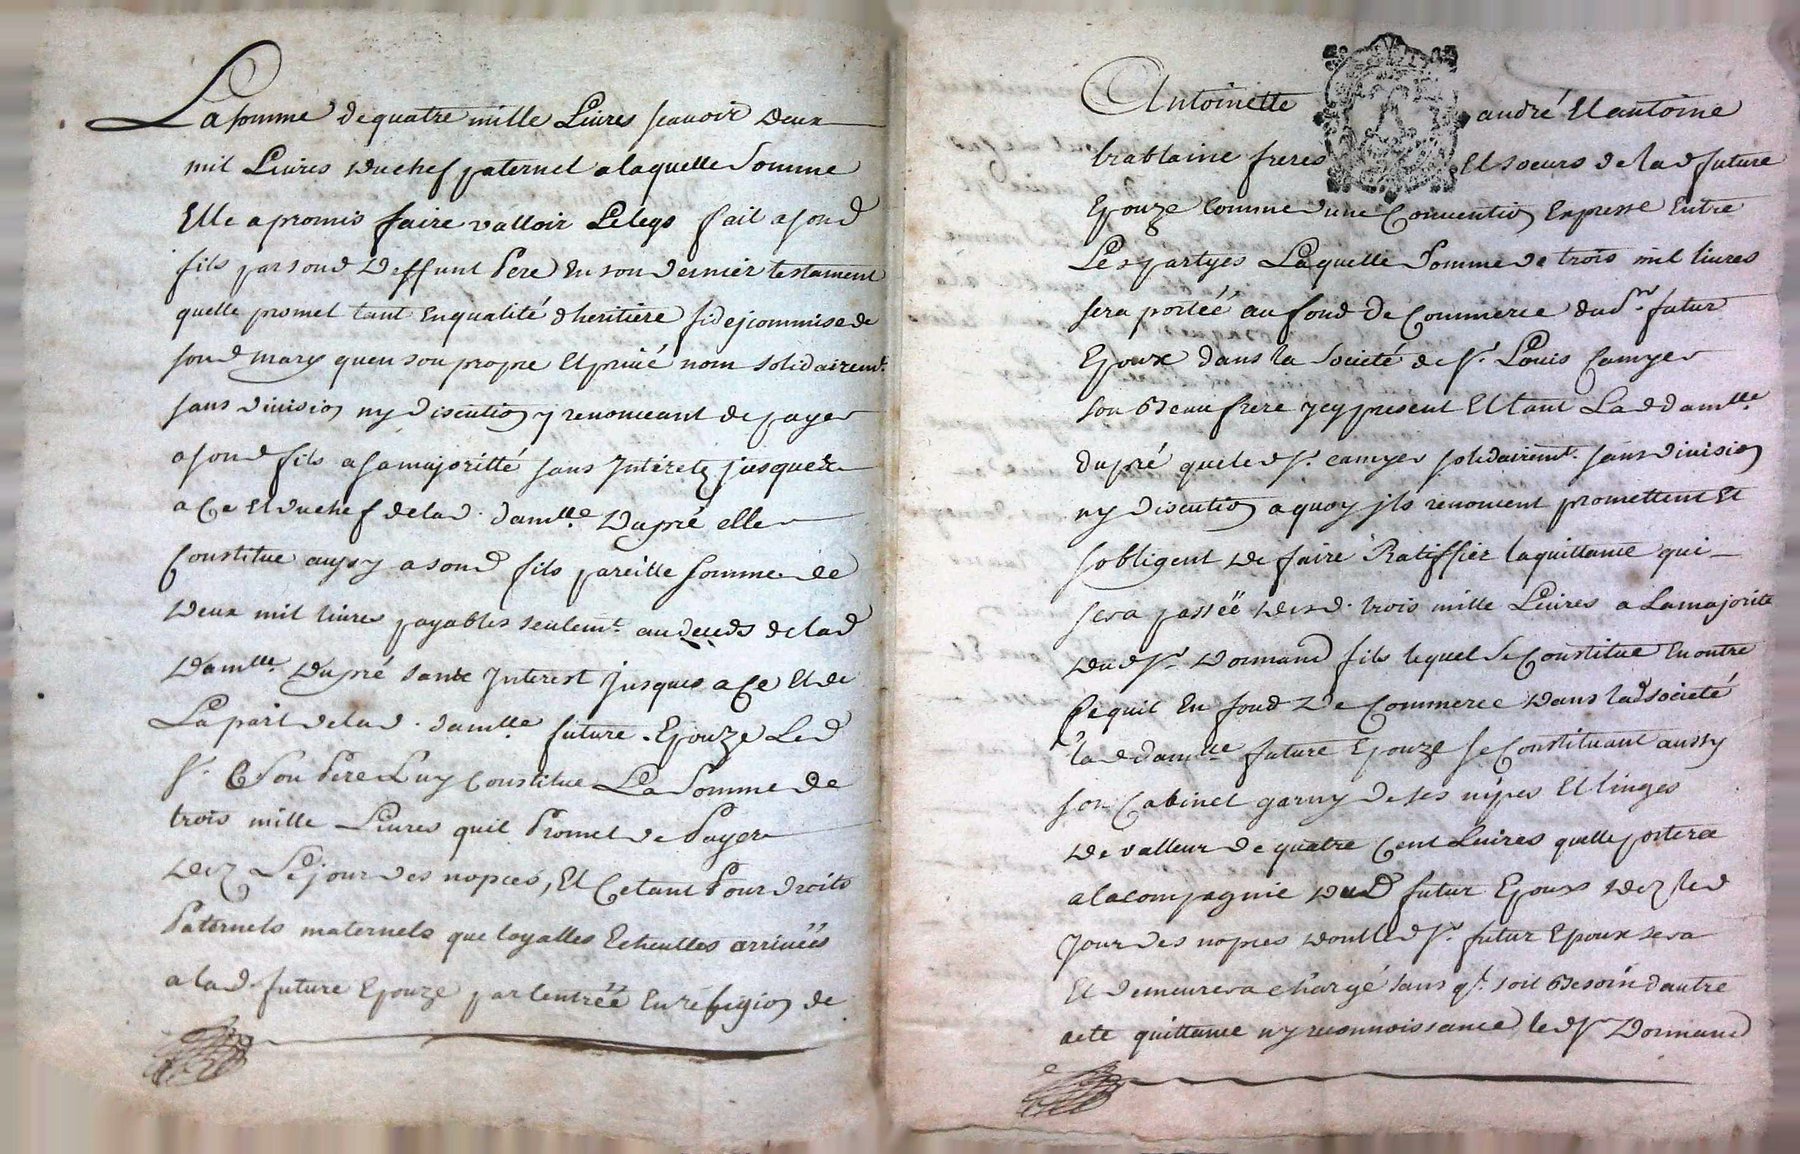 La somme de quatre mille Livres scavoir deux
mil Livres du chef paternel a laquelle Somme
Elle a promis faire valloir Le legs fait a sond
fils par sond deffunt Pere En son dernier testament
quelle promet tant En qualité d'heritière fideicommise de
sond mary quen son propre Et privé nom solidairemt.
sans division ny discution y renonceant de payer
a sond fils a sa majoritté sans Interets jusques
a Ce Et du chef de lad. damlle. Dupré elle
Constitue aussy a sond fils pareille somme de
deux mil livres payables seulemt. au deceds de lad
damlle. Dupré sans Interest jusques a Ce Et de
La part de lad. damlle future Epouze Led
sr. Son Pere Luy Constitue La Somme de
trois mille Livres quil Promet de Payer
dez Le jour des nopces, Et Ce tant Pour droits
Paternels maternels que loyalles Echeuttes arrivéés
a lad. future Epouze par lentréé En réligion de
Antoinette andré Et antoine
trablaine freres Et soeurs de lad future
Epouze Comme dune Convention Expresse Entre
Les partyes Laquelle Somme de trois mil livres
sera portéé au fond de Commerce dud sr. futur
Epoux dans la Societé de sr. Louis Camyer
son Beau frere ycy present Et tant Lad damlle
dupré que led sr. camyer solidairemt. sans division
ny discution a quoy ils renoncent promettent Et
sobligent de faire Ratiffier la quittance qui
sera passéé desd. trois mille Livres a La majorité
dud sr. Dormand fils lequel Se Constitue En outre
ce quil En fond de Commerce dans lad societé
lad damlle future Epouze se Constituant aussy
son Cabinet garny de ses nipes Et linges
de valleur de quatre Cent Livres quelle portera
a la compagnie dud futur Epoux dez led
Jour des nopces dont led sr. futur Epoux sera
Et demeurera chargé sans ql. soit Besoin dautre
acte quittance ny reconnoissance, led sr Dormand